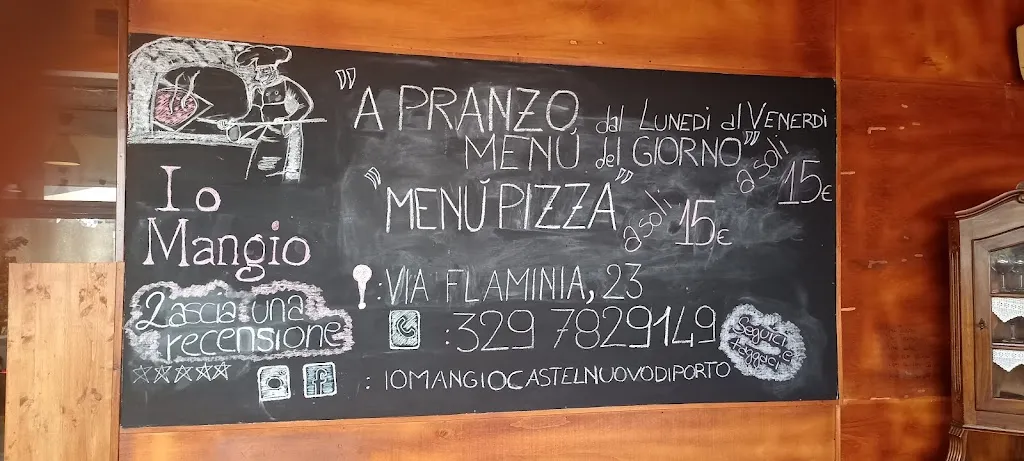 Io
Mangio
Lascia una
recensione
"A PRANZO dal LUNEDÌ al VENERDÌ
MENÚ del GIORNO" a soli 15€
"MENÚ PIZZA" a soli 15€
: VIA FLAMINIA, 23
: 329 7829149
: IOMANGIOCASTELNUOVODIPORTO
Seguici e
taggaci